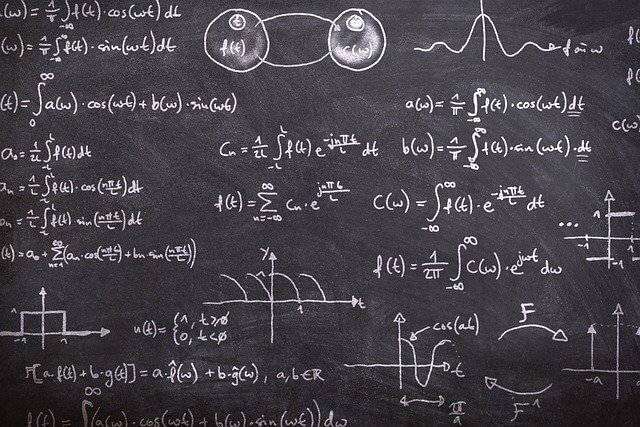 (ω) = 1/π ∫_{-∞}^{∞} f(t)·cos(ωt) dt
(ω) = 1/π ∫_{-∞}^{∞} f(t)·sin(ωt) dt
t f(t)
t C(ω)
ω
(t) = ∫_0^∞ a(ω)·cos(ωt) + b(ω)·sin(ωt)
a(ω) = 1/π ∫_{-∞}^{∞} f(t)·cos(ωt) dt
a₀ = 1/2L ∫_{-L}^{L} f(t) dt
Cn = 1/2L ∫_{-L}^{L} f(t) e^{-jnπt/L} dt
b(ω) = 1/π ∫_{-∞}^{∞} f(t)·sin(ωt)·dt
C(ω)
an = 1/L ∫_{-L}^{L} f(t)·cos(nπt/L) dt
f(t) = Σ_{n=-∞}^{∞} Cn·e^{jnπt/L}
C(ω) = ∫_{-∞}^{∞} f(t)·e^{-jnπt/L} dt
bn = 1/L ∫_{-L}^{L} f(t)·sin(nπt/L) dt
(t) = a₀ + Σ_{n=1}^{∞} (an·cos(nπt/L) + bn·sin(nπt/L))
f(t) = 1/2π ∫_{-∞}^{∞} C(ω)·e^{jωt} dω
... 1 -1
y 1 t
-1 1
u(t) = {1, t≥0
0, t<0
cos(at)
t
F
F⁻¹
-a
F[a·f(t) + b·g(t)] = a·f̂(ω) + b·ĝ(ω), a,b∈ℝ
f(t) = ∫^∞ (a(ω)·cos(ωt) + b(ω)·sin(ωt)) dω